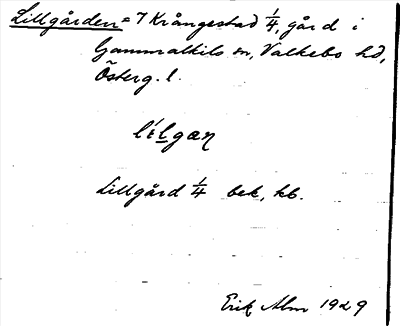 Lillgården = 7 Krångestad 1/4, gård i
Gammalkils sn, Valkebo hd,
Österg. l.
lilgan
Lillgård 1/4 bek, kb.
Erik Alm 1929